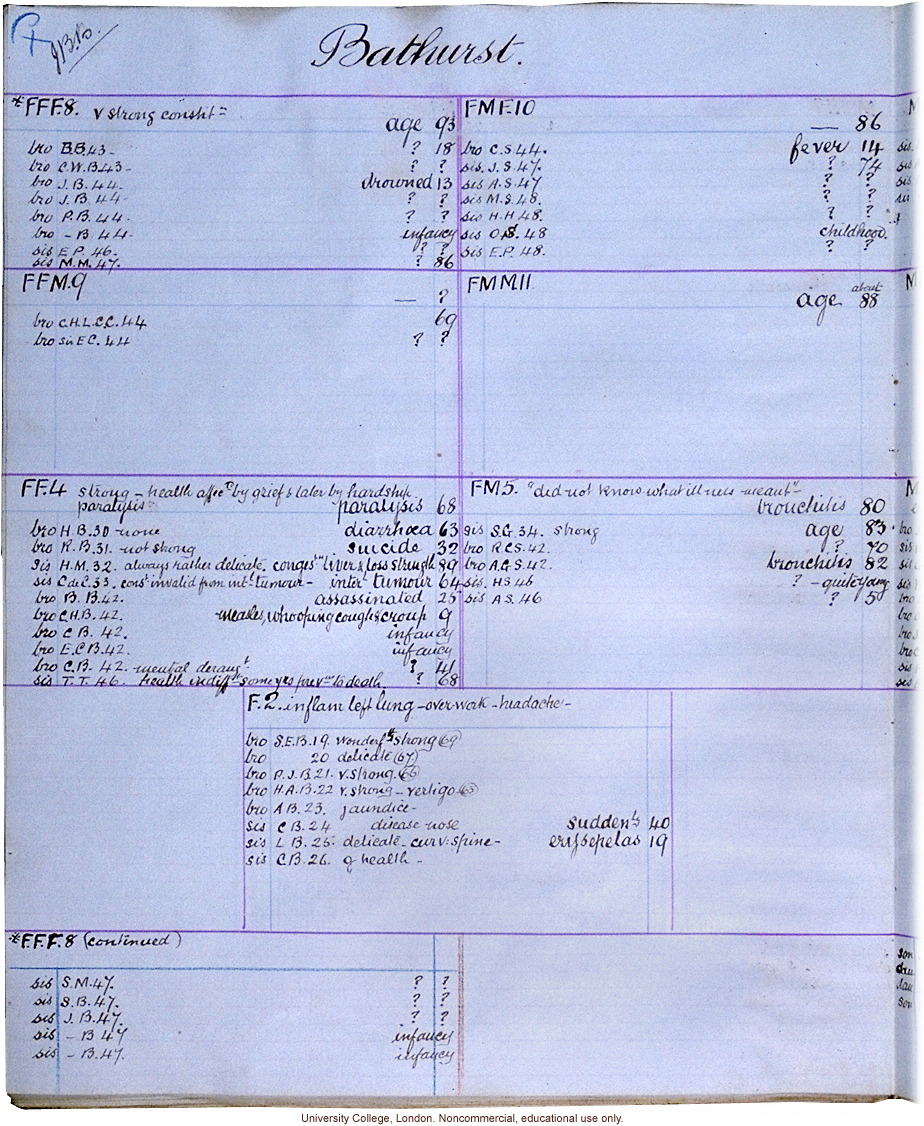 J.B.B.
Bathurst.
*FFF.8. v strong constit=
age 93
bro B.B.43- ? 18
bro C.W.B.43- ? ?
bro J.B.44- drowned 13
bro J.B.44- ? ?
bro P.B.44- ? ?
bro - B 44- infancy
sis E.P. 46. ? ?
sis M.M. 47. ? 86
FMF.10
— 86
bro C.S.44. fever 14
sis. J.S.47. ? 74
sis A.S.47 ? ?
sis M.S.48. ? ?
sis H.H 48. ? ?
sis O.S. 48 childhood.
sis E.P. 48. ? ?
FFM.9
— ?
bro C.H.L.C.C. 44 69
bro sis E C. 44 ? ?
FMM.11
about
age 88
FF.4 strong - health affecd by grief & later by hardship.
paralysis- paralysis 68
bro H.B.30 - none diarrhœa 63
bro R.B.31. not strong suicide 32
sis H.M. 32. always rather delicate, congesn liver & loss strength 89
sis C de C.33. const invalid from intl tumour - interl tumour 64
bro B. B.42. assassinated 25
bro C.H.B.42. measles, whooping cough & croup 9
bro C B. 42. infancy
bro E.C B.42. infancy
bro C.B. 42. mental derangt. ? 41
sis T.T. 46. health indifft some yrs prevus to death ? 68
FM5. "did not know what illness meant"-
bronchitis 80
sis S.G. 34. strong age 83
bro R.C.S.42. ? 70
bro A.G.S.42. bronchitis 82
sis. H.S.46 ? - quite young
sis A.S. 46 ? 5
F.2. inflam left lung - over-work - headache -
bro S.E.B.19. wonderfly strong (69)
bro 20 delicate (67)
bro P.J.B.21. v. strong. (66)
bro H.A.B.22 v. strong - vertigo (63)
bro A B. 23. jaundice -
sis C B. 24 disease nose suddenly 40
sis L B. 25. delicate - curv: spine - erysepelas 19
sis C.B. 26. g health -
*F.F.F.8 (continued)
sis S.M.47. ? ?
sis S.B.47. ? ?
sis J.B.47. ? ?
sis - B 47 infancy
sis - B.47. infancy
University College, London. Noncommercial, educational use only.